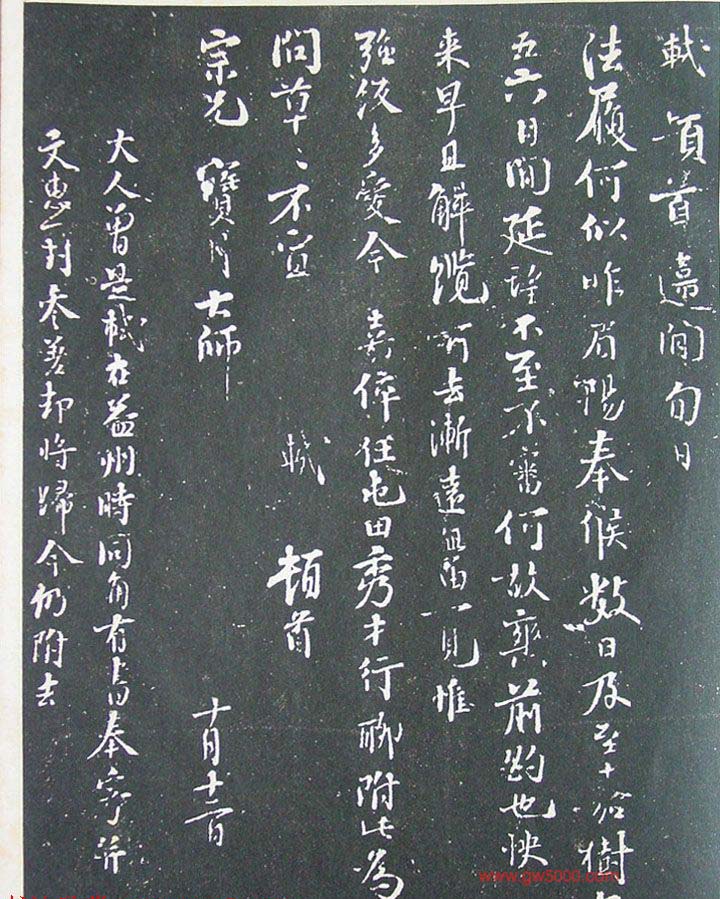 軾頓首違間旬日
法履何似昨眉陽奉候數日及至
五六日間延望不至不審何故爽前約也怏
来早且解纜前去漸遠無由一見惟
強飯多愛今嘉倅任屯田秀才行聊附此為
問草〻不宣軾頓首
宗兄寶月大師十月十二日
大人曾見軾在益州時同角有書奉寄并
文惠一封却将歸今仍附去
www.gw5000.com